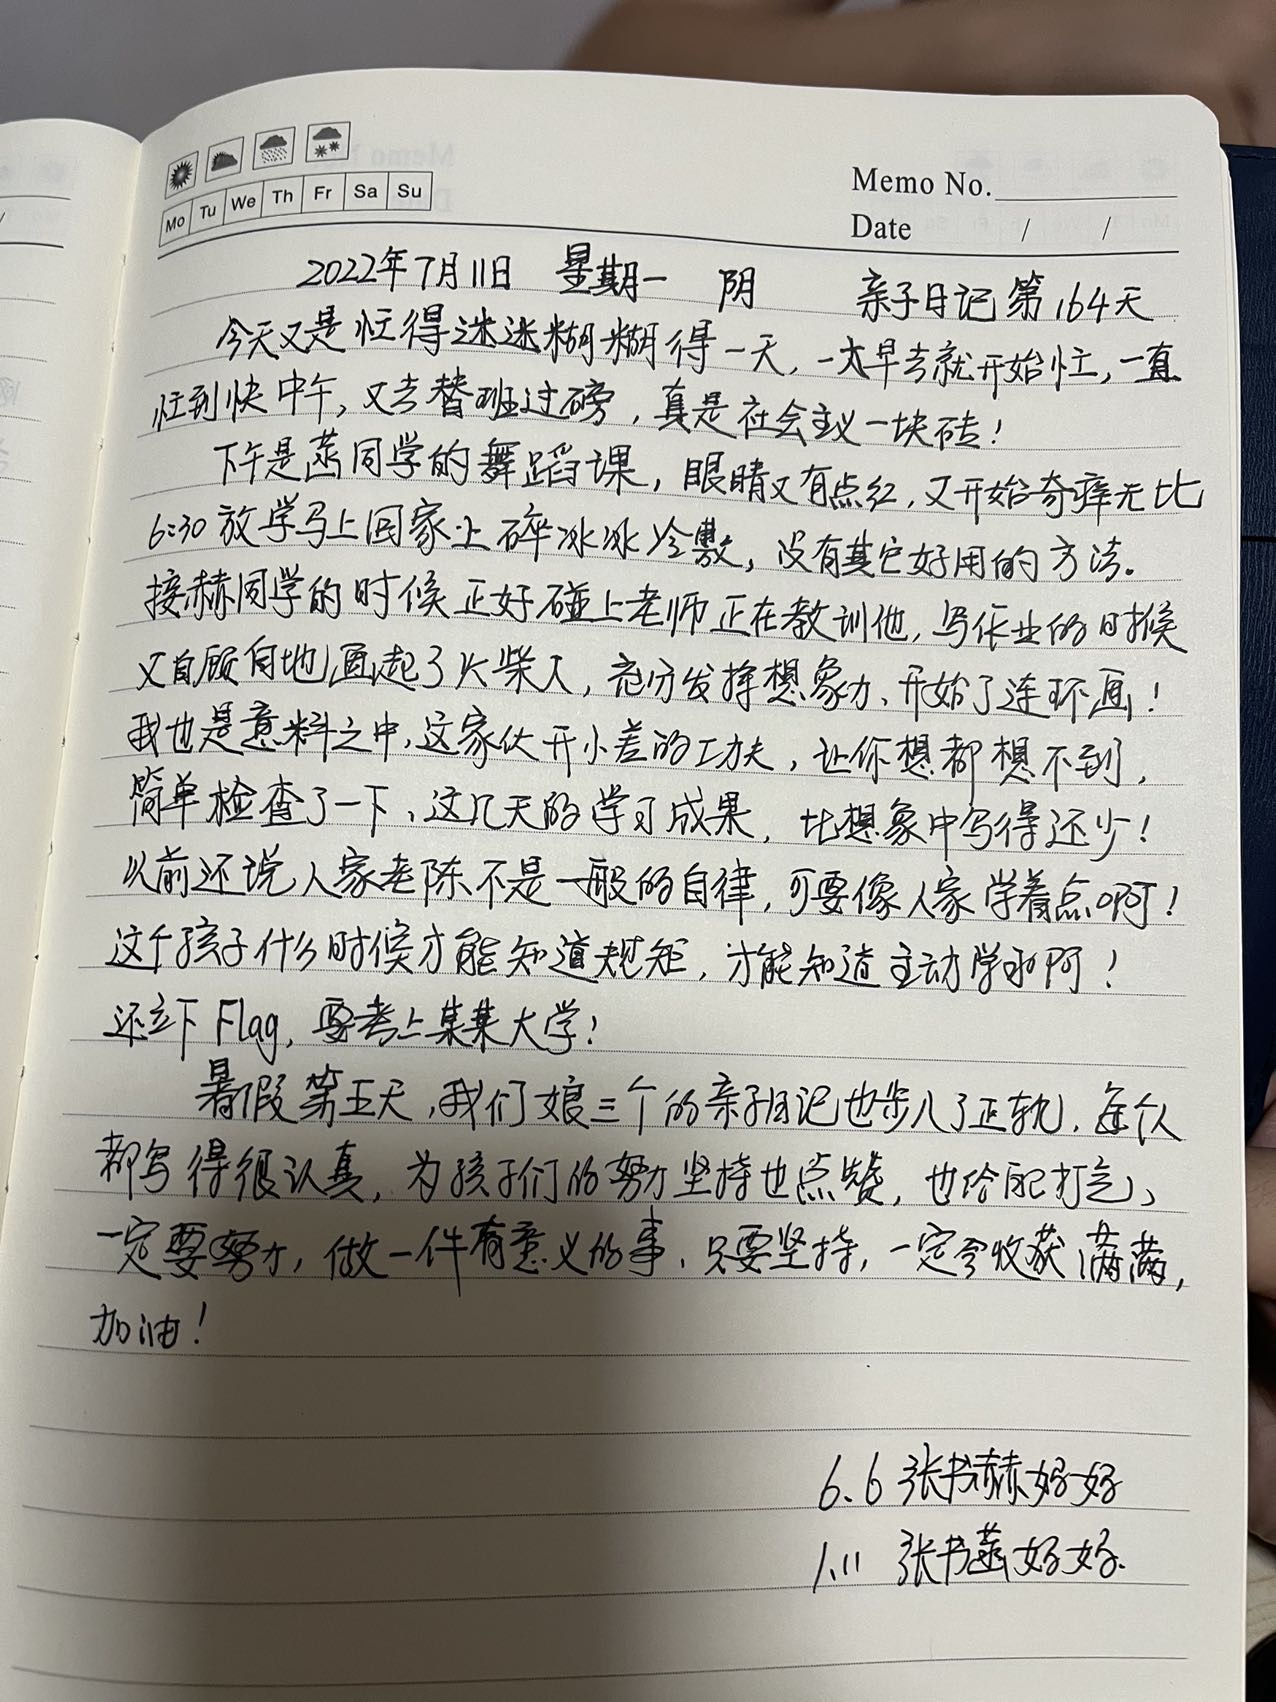 Mo Tu We Th Fr Sa Su
Memo No.
Date / /
2022年7月11日 星期一 阴 亲子日记第164天
今天又是忙得迷迷糊糊得一天，一大早去就开始忙，一直
忙到快中午，又去替班过磅，真是社会主义一块砖！
下午是菡同学的舞蹈课，眼睛又有点红，又开始奇痒无比
6:30放学马上回家上碎冰冰冷敷，没有其它好用的方法。
接赫同学的时候正好碰上老师正在教训他，写作业的时候
又自顾自地画起了火柴人，充分发挥想象力、开始了连环画！
我也是意料之中，这家伙开小差的功夫，让你想都想不到，
简单检查了一下，这几天的学习成果，比想象中写得还少！
以前还说人家老陈不是一般的自律，可要像人家学着点啊！
这个孩子什么时候才能知道规矩，才能知道主动学习啊！
还立下Flag，要考上某某大学！
暑假第五天，我们娘三个的亲子日记也步入了正轨，每个人
都写得很认真，为孩子们的努力坚持也点赞，也给自己打气、
一定要努力，做一件有意义的事，只要坚持，一定会收获满满，
加油！
6.6 张书赫好好
1.11 张书菡好好.